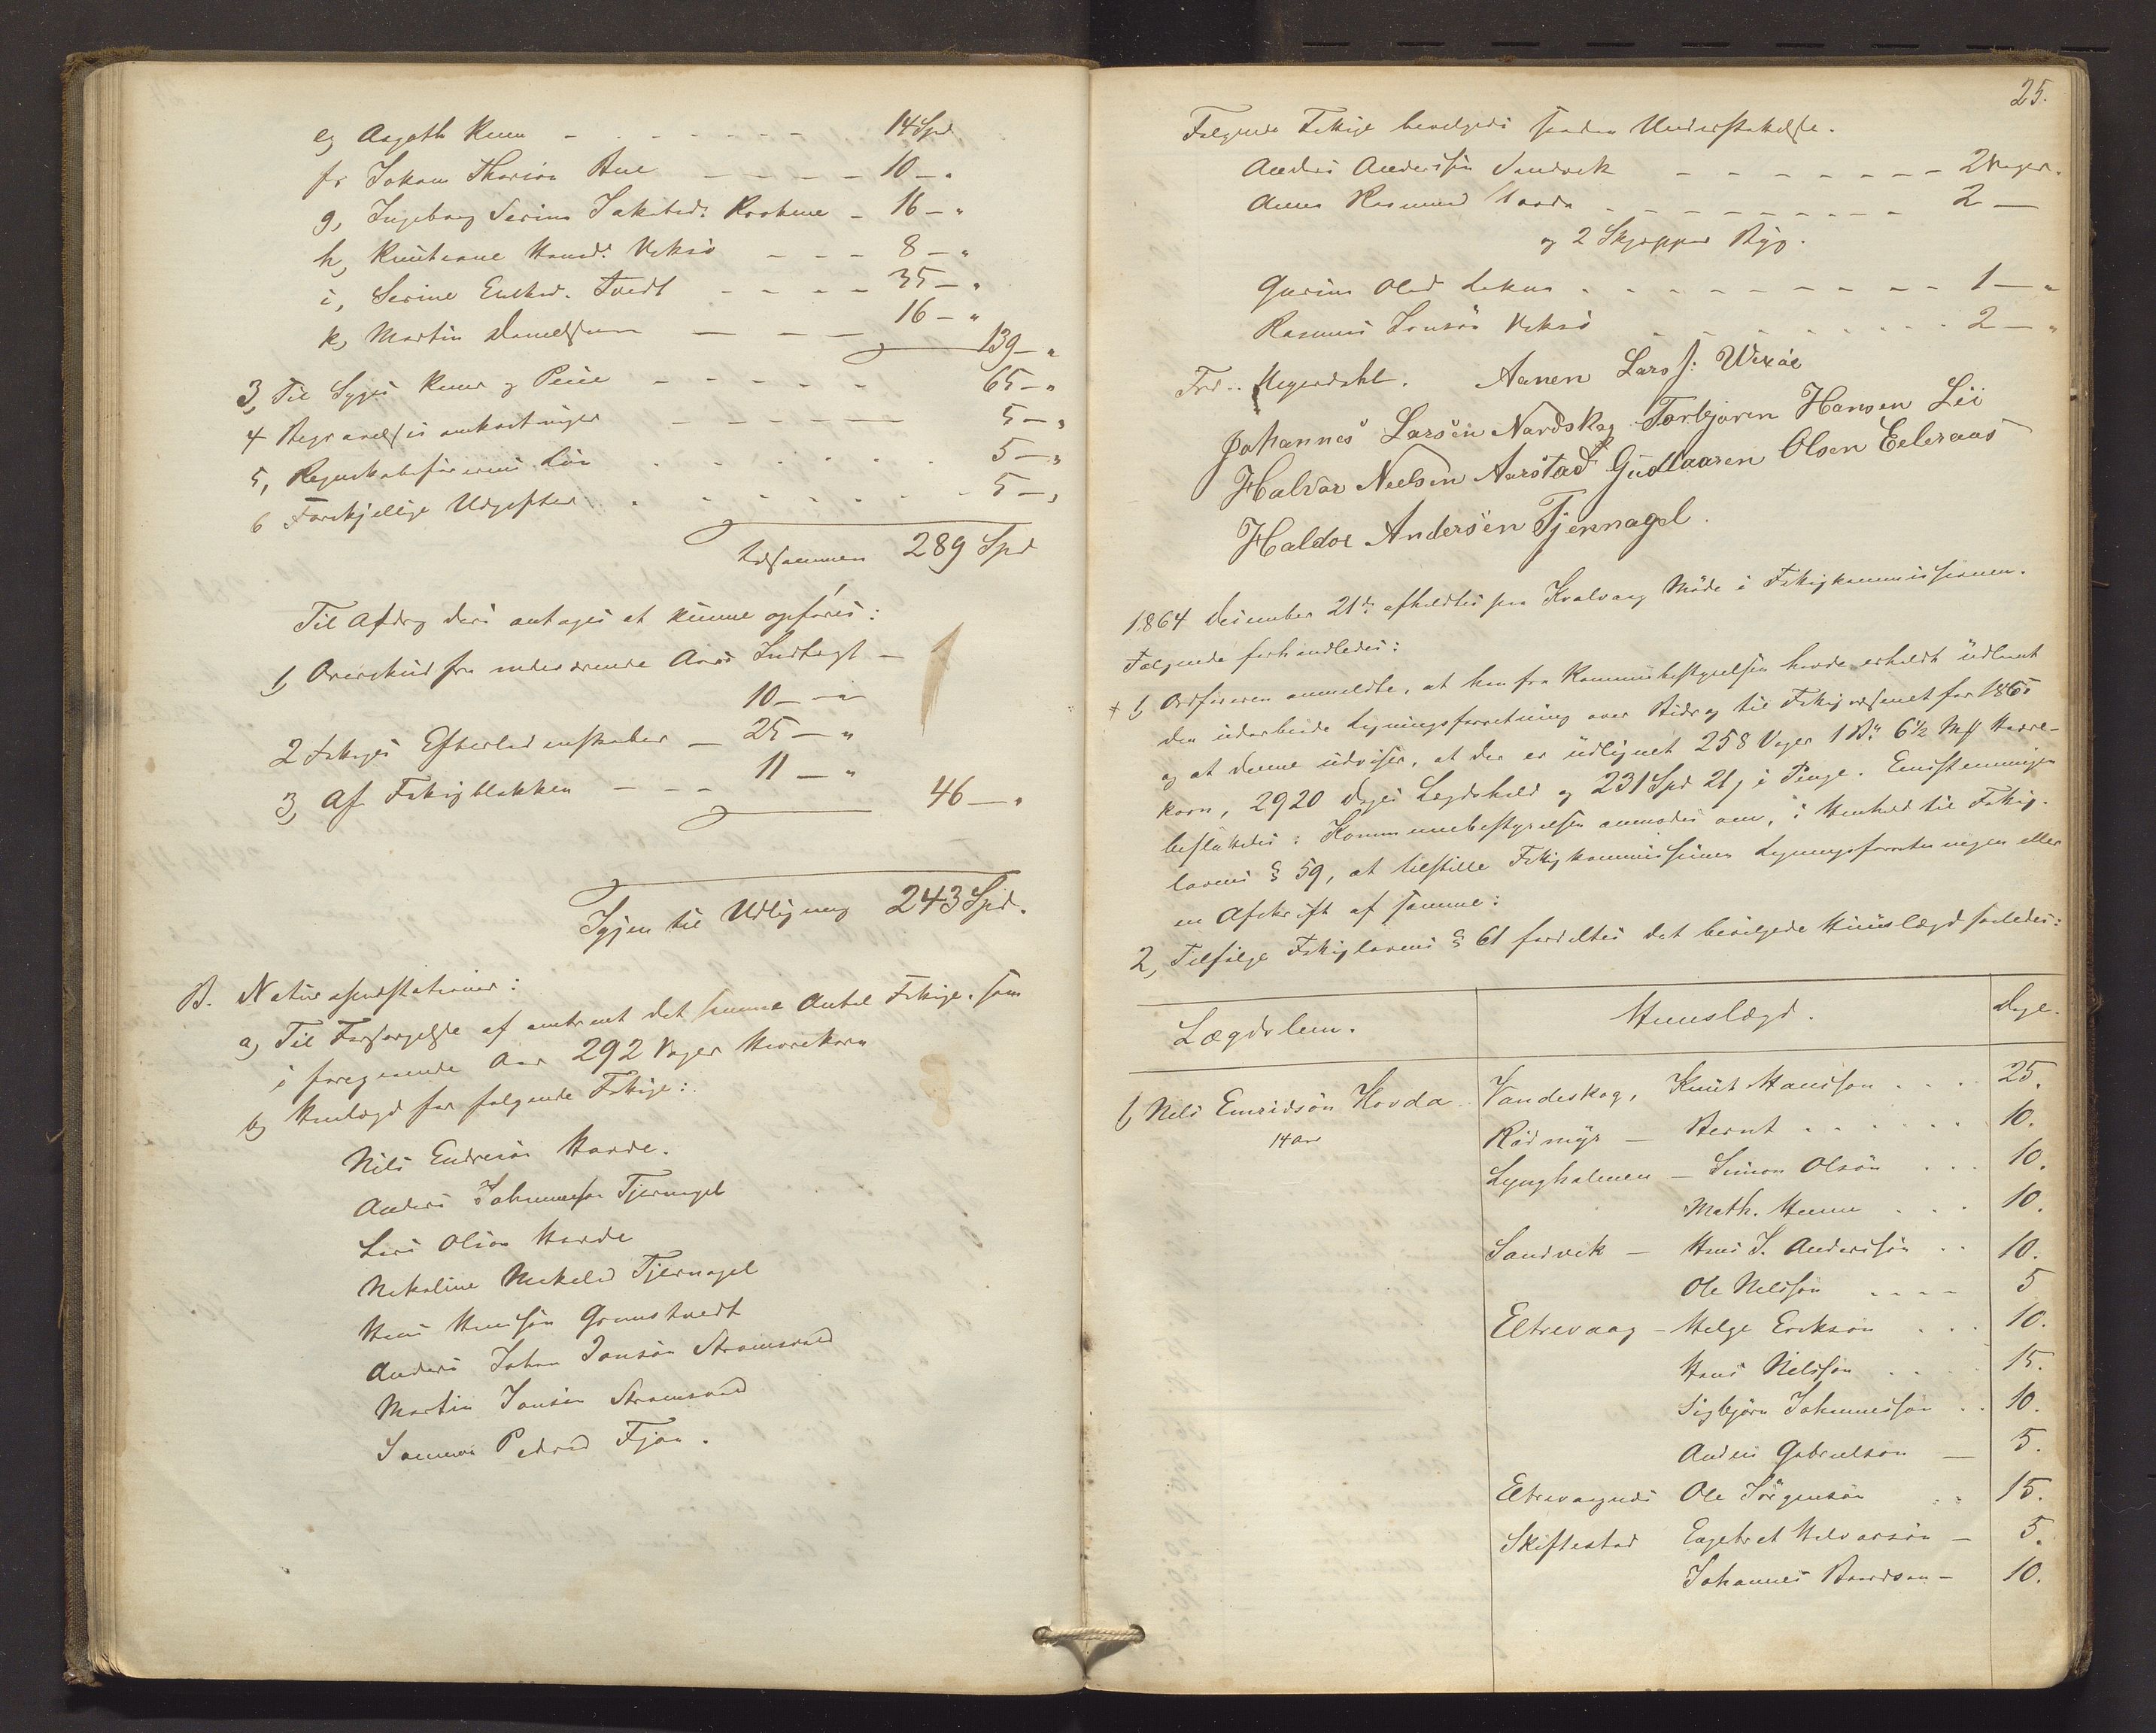 e, Aageth Kuun - - - - - - 14 Spd
f, Johan Thorsøn Bue - - - - 10 - "
g, Ingeborg Serine Jakobsd. - 16 - "
h, Knutiane Hansd. Veksø - - - 8 - "
i, Serine Endresd. Tvedt - - - - 35 - "
k, Martin Danielsen - - - 16 - "
139 - "
3, Til Syges Kuur og Pleie - - - - - 65 - "
4 Begravelsesomkostninger - - - - - 5 - "
5, Regnskabsførerens Løn . . . . . . 5 - "
6 Forskjellige Udgifter . . . . . . 5 - "
tilsammen 289 Spd
Til Afdrag deri antages at kunne opføres:
1, Overskud fra indeværende Aars Indtægt -
10 - "
2 Fattiges Efterladenskaber - 25 - "
3, Af Fattigblokken - - - 11 - "
46 - "
Igjen til Udligning 243 Spd.
B. Naturalpræstationer:
a, Til Forsørgelse af omtrent det samme Antal Fattige, som
i foregaaende Aar 292 Voger Havrekorn
b, Huuslægd for følgende Fattige:
Nils Endresøn Hovde.
Anders Johannessøn Tjernagel
Lars Olsøn Hovde
Nikoline Mikelsd Tjernagel
Hans Hansøn Grønstvedt
Anders Johan Jonsøn Strømsvold
Martin Jonsøn Strømsvold
Pedersd Fjøn.
25.
Følgende Fattige bevilgedes saadan Understøttelse.
Anders Anderssøn Sandvik - - - - - - - - 2 Voger.
Anna Rasmusd Hovda - - - - - - - - - 2 —
og 2 Skjepper Byg.
Gurine Olsd . - - - - - - - - - 1 - "
Rasmus Jonsøn Veksø - . . . . . . . 2 - "
Fred. Meyerdahl. Aanen Lars S: Wexøe
Johannes Larsen Nordskog Torbjøren Hansen Lie
Halvor Neelsen Aarstad Gudlaaren Olsen Eeleraas
Haldor Andersen Tjernnagel.
1864 December 21de afholdtes paa Kvalvaag Møde i Fattigkommissionen.
Følgende forhandledes:
+ 1, Ordføreren anmeldte, at han fra Kommunebestyrelsen havde erholdt udlaant
den udarbeide Ligningsforretning over Bidrag til Fattigvæsenet for 1865
og at denne udviser, at der er udlignet 258 Voger 1 Bn 6½ Mk Havre-
korn, 2920 Dages Lægdshold og 231 Spd 21 s i Penge. Eenstemmigen
besluttedes: Kommunebestyrelsen anmodes om, i Henhold til Fattig-
lovens § 59, at tilstille Fattigkommissionen Ligningsforretningen eller
en Afskrift af samme:
2, Tilfølge Fattiglovens § 61 fordeltes det bevilgede Huuslægd saaledes:
Lægdslem. Huuslægd. Dage.
1, Nels Endridsøn Hovda Vandeskog, Knut Hansson . . . . 25.
14 Aar Rødmyr - Bernt . . . . . . 10.
Lyngholmen - Simon Olsøn . . . 10.
Math. . . . 10.
Sandvik - Hans J. Anderssøn . . 10.
Ole Nilsson - - - - 5
Eltrevaag - Helge Eriksøn . . . 10.
Hans Nilsson . . . 15.
Sigbjørn Johannessøn . . 10.
Anders Gabrielsøn — 5.
Eltrevaagnes Ole Jørgensøn . . 15.
Skiftestad Engebret Halvorsøn - 5.
Johannes Baardsøn - 10.